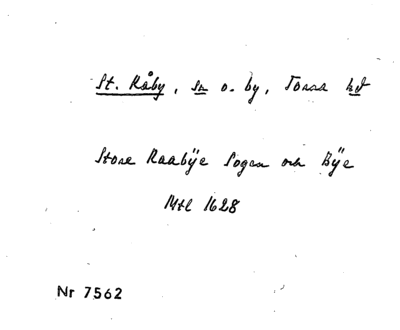 St. Råby, sn o. by, Torna hd
Store Raabÿe Sogen och Bÿe
Mtl 1628
Nr 7562